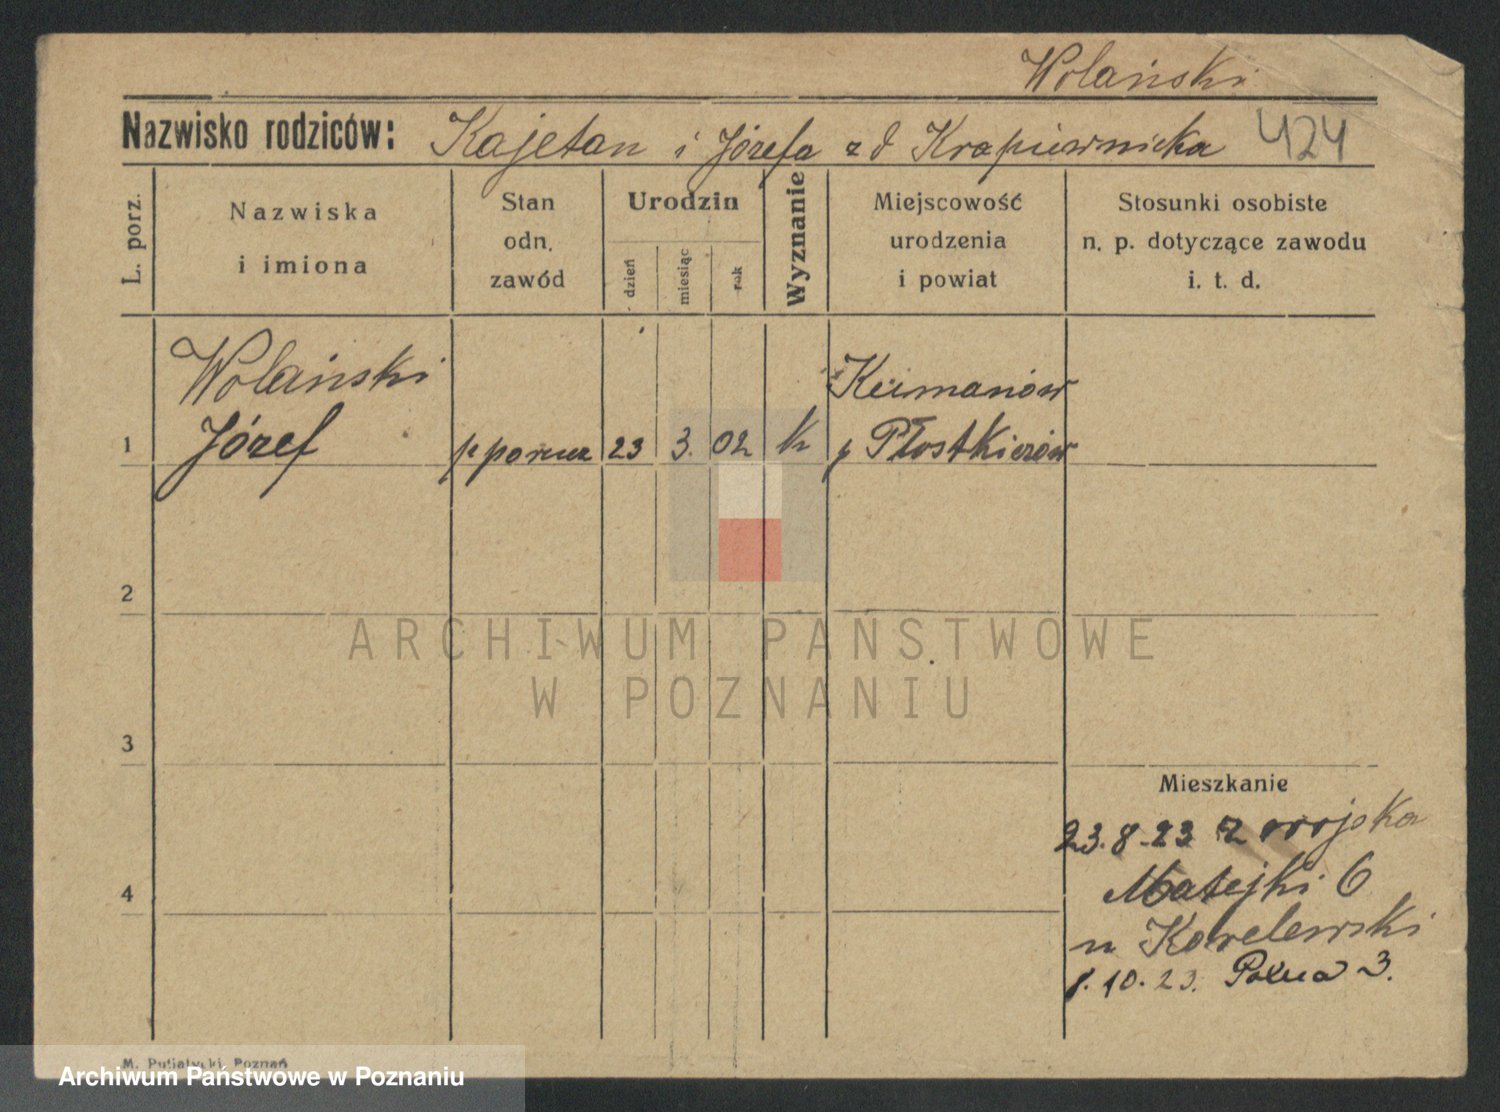 Wolański
Nazwisko rodziców: Kajetan i Józefa z d Krapiewnicka 424
L. porz.
Nazwiska
i imiona
Stan
odn.
zawód
Urodzin
dzień
miesiąc
rok
Wyznanie
Miejscowość
urodzenia
i powiat
Stosunki osobiste
n. p. dotyczące zawodu
i. t. d.
Wolański
1 Józef p porucz 23 3. 02 k
p Płoskirów
2
ARCHIWUM PAŃSTWOWE
W POZNANIU
3
Mieszkanie
23.8.23 z wojska
4
Matejki 6
u Kowelewski
8.10.23. 3.
M. Putiatycki, Poznań
Archiwum Państwowe w Poznaniu